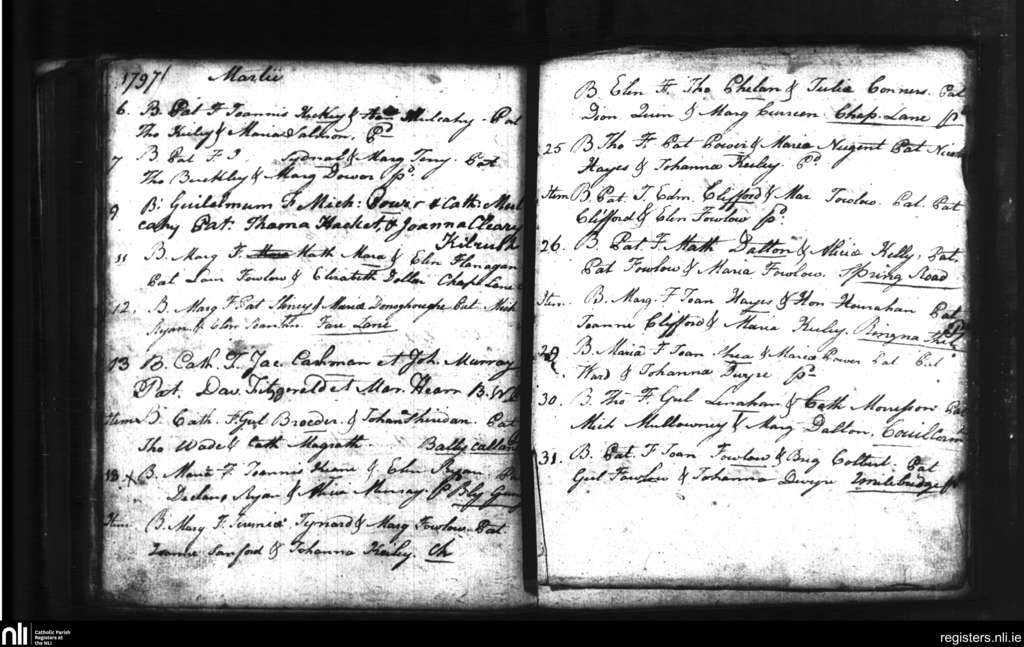 1797/ Martii
6. B. Pat F Joannis Hickey & Mulcahy - Pat
Tho Keily & Maria Salmon, Pd
7 B Pat F J. & Marg Terry. Pat
Tho Buckley & Marg Power pd.
9 B: Guilelmum F Mich: Power & Cath: Mul
cahy Pat: Thoma Hacket, & Joanna Cleary
Kilrush
11 B. Marg F. Math Mara & Elin Flanagan
Pat Fowlow & Elizabeth Chapl Lane
12. B. Marg F. Pat & Maria Donoghoughe Pat Mich
Ryan & Elin Scanlan. Fare Lane
13 B. Cath. F. Jac. Cashman et Joh. Murray
Pat. Dav. Fitzgerald et Mar. Hearn
Item B. Cath. F. Gul Broeder & Johan Sheridan. Pat
Tho Wade & Cath Magrath. Ballycullane
B. Maria F Joannis Keane & Elin Ryan
Declan Ryan & Alice Murray P
Item B. Mary F. & Marg Fowlow. Pat.
Joanne Sanford & Johanna Keily. Ch
B Elin F. Tho Phelan & Julia Conners. Pat
Dion Quin & Marg Curreen. Chap. Lane pd
25 B Tho F. Pat Power & Maria Nugent Pat
Hayes & Johanna Keily. Pd
Item B. Pat. F. Edm. Clifford & Mar Fowlow. Pat. Pat
Clifford & Elin Fowlow pd
26. B. Pat. F. Math Dalton & Alicia Kelly, Pat,
Pat Fowlow & Maria Fowlow. Spring Road
Item. B. Marg. F Joan Hayes & Hon Hourahan Pat
Joanne Clifford & Maria Keily.
B. Maria F Joan Shea & Maria Power Pat Pat
Ward & Johanna Dwyre pd
30. B. Tho F. Gul Linahan & Cath Morrisson Pat
Mich Mullowney & Marg Dalton,
31. B. Pat. F Joan Fowlow & Brig Colbert: Pat
Gul Fowlow & Johanna Dwyre
nli
Catholic Parish
Registers at
the NLI
registers.nli.ie